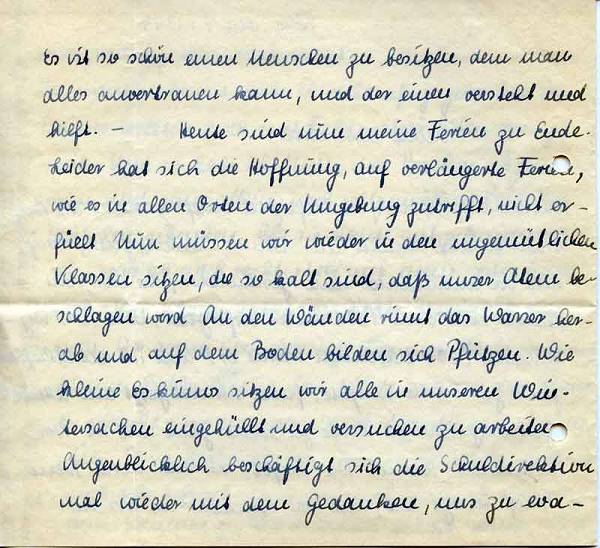 Es ist so schön einen Menschen zu besitzen, dem man
alles anvertrauen kann, und der einen versteht und
hilft. — Heute sind nun meine Ferien zu Ende.
Leider hat sich die Hoffnung, auf verlängerte Ferien,
wie es in allen Orten der Umgebung zutrifft, nicht er-
füllt Nun müssen wir wieder in den ungemütlichen
Klassen sitzen, die so kalt sind, daß unser Atem be-
schlagen wird An den Wänden rinnt das Wasser her-
ab und auf dem Boden bilden sich Pfützen. Wie
kleine Eskimos sitzen wir alle in unseren Win-
tersachen eingehüllt und versuchen zu arbeiten
Augenblicklich beschäftigt sich die Schuldirektion
mal wieder mit dem Gedanken, uns zu eva-